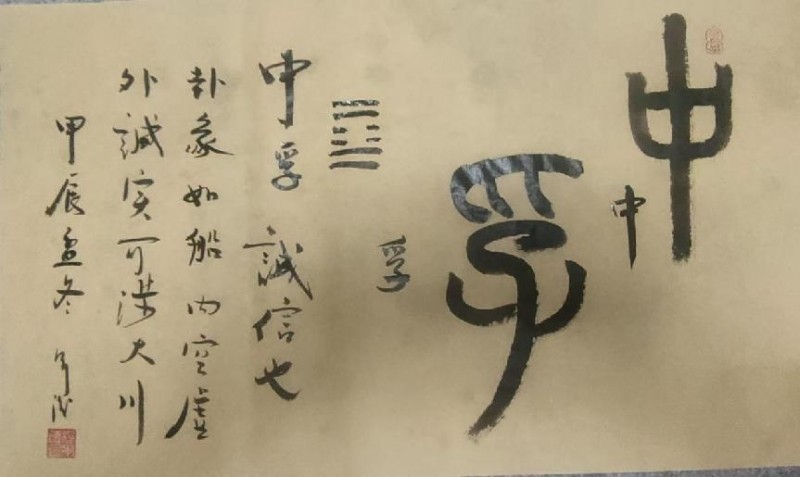 中
中
孚
孚
中孚 誠信也
卦象如船内空虛
外誠实可渉大川
甲辰孟冬